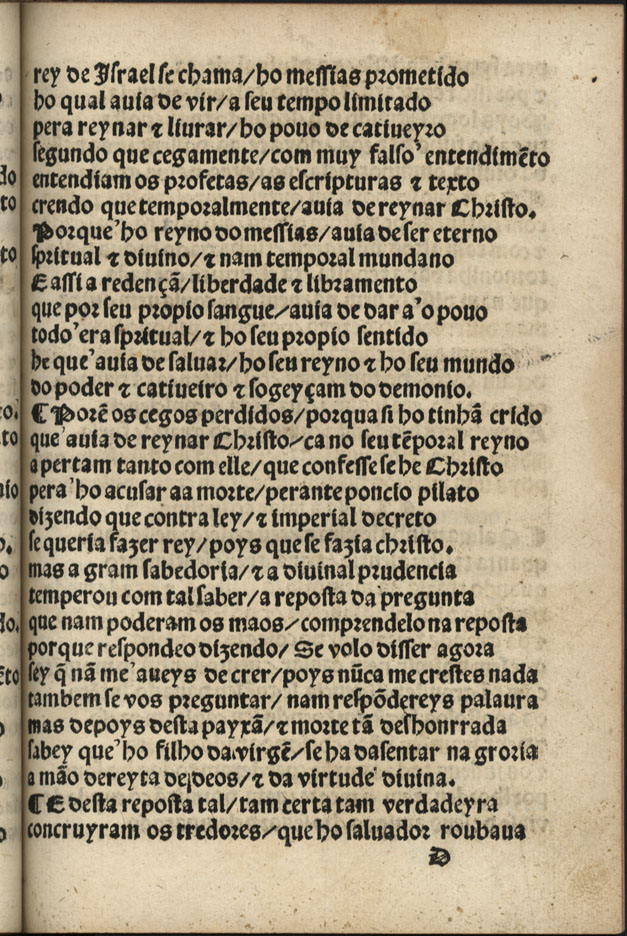 rey de Israel se chama/ho messias prometido
ho qual auia de vir/a seu tempo limitado
pera reynar ⁊ liurar/ho pouo de catiueyro
segundo que cegamente/com muy falso' entendimẽto
entendiam os profetas/as escripturas ⁊ texto
crendo que temporalmente/auia de reynar Christo.
Porque'ho reyno do messias/auia de ser eterno
spritual ⁊ diuino/⁊ nam temporal mundano
E assi a redençã/liberdade ⁊ libramento
que por seu propio sangue/auia de dar a'o pouo
todo'era spritual/⁊ ho seu propio sentido
he que'auia de saluar/ho seu reyno ⁊ ho seu mundo
do poder ⁊ catiueiro ⁊ sogeyçam do demonio.
¶ Porẽ os cegos perdidos/porqua si ho tinhã crido
que'auia de reynar Christo/ca no seu tẽporal reyno
apertam tanto com elle/que confesse se he Christo
pera'ho acusar aa morte/perante poncio pilato
dizendo que contra ley/⁊ imperial decreto
se queria fazer rey/poys que se fazia christo.
mas a gram sabedoria/⁊ a diuinal prudencia
temperou com tal saber/a reposta da pregunta
que nam poderam os maos/comprendelo na reposta
porque respondeo dizendo/ Se volo disser agora
sey q̃ nã me'aueys de crer/poys nũca me crestes nada
tambem se vos preguntar/ nam respõdereys palaura
mas depoys desta payxã/⁊ morte tã deshonrrada
sabey que'ho filho da virgẽ/se ha dasentar na groria
a mão dereyta de deos/⁊ da virtude diuina.
¶ E desta reposta tal/tam certa tam verdadeyra
concruyram os tredores/que ho saluador roubaua
D